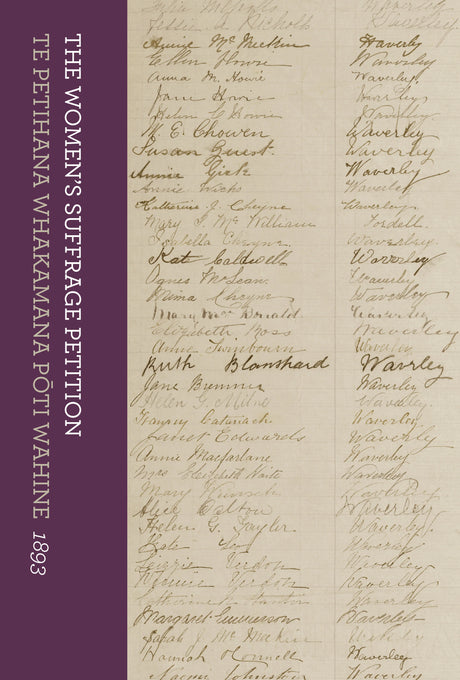 THE WOMEN'S SUFFRAGE PETITION
TE PETIHANA WHAKAMANA PŌTI WAHINE 1893
Jessie A Nicholls Waverley
Annie McMeekin Waverly
Ellen Howie Waverley
Anna M. Howie Waverley.
Jane Howie Waverley
Helen C Howie Waverley
M. E. Chowen Waverley
Susan Guest. Waverley
Annie Gick Waverley
Annie Wicks Waverley
Katherine J. Cheyne Waverley.
Mary I. McWilliam Fordell.
Isabella Cheyne Waverley.
Kate Caldwell Waverley
Agnes McLean. Waverley
Cheyne Waverley
Mary MacDonald Waverley
Elizabeth Ross Waverley
Annie Swinbourn Waverley
Ruth Blanshard Waverley
Jane Bremner Waverley
Helen G. Milne Waverley.
Catanach Waverley
Janet Edwards Waverly
Annie Macfarlane Waverly
Mrs Elizabeth Waite Waverley
Mary Waverley.
Alice Walton Waverley
Helen G. Tayler. Waverley.
Kate Waverley
Lizzie Verdon Waverley
Verdon Waverley
Catherine Waverley
Margaret Waverley
Sarah J McMeekin Waverley
Hannah Connell Waverley
Johnston Waverley